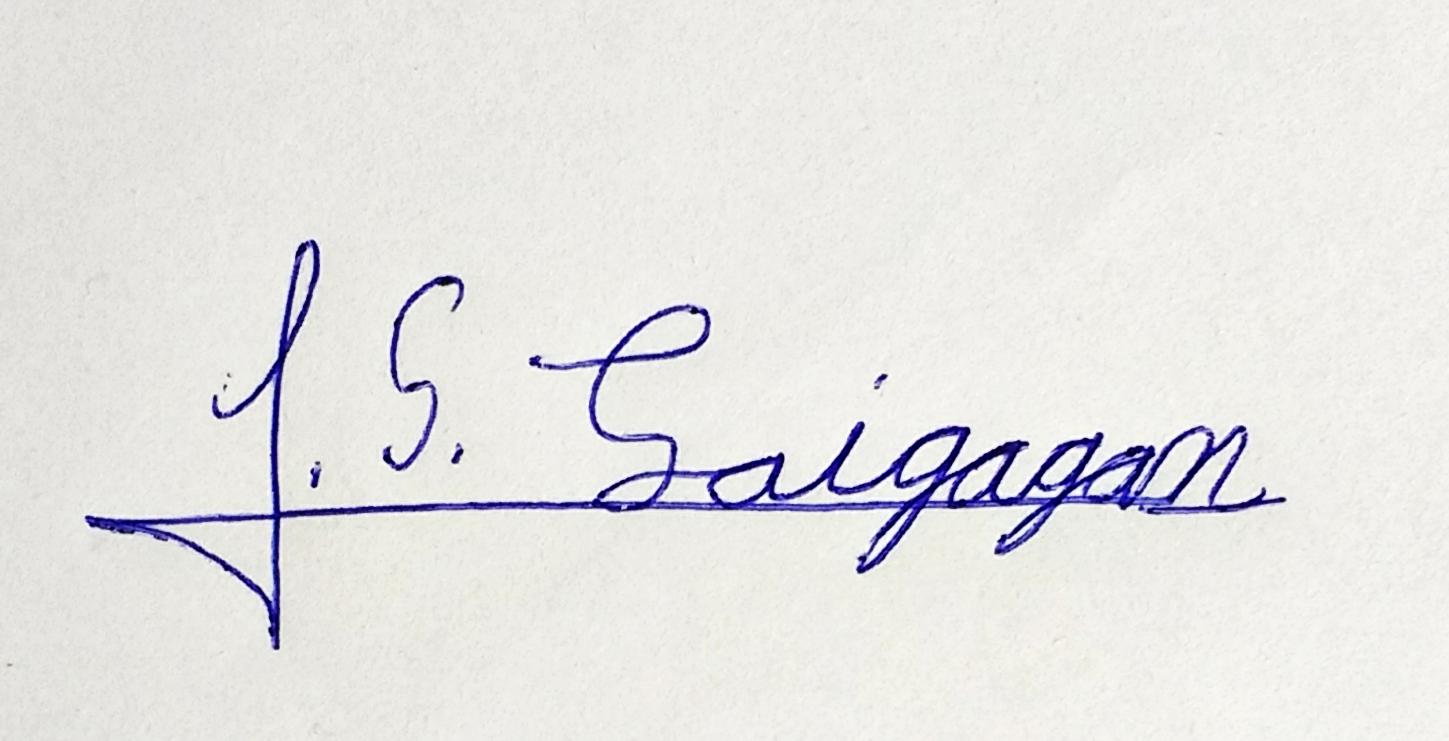 J. S. Saigagan